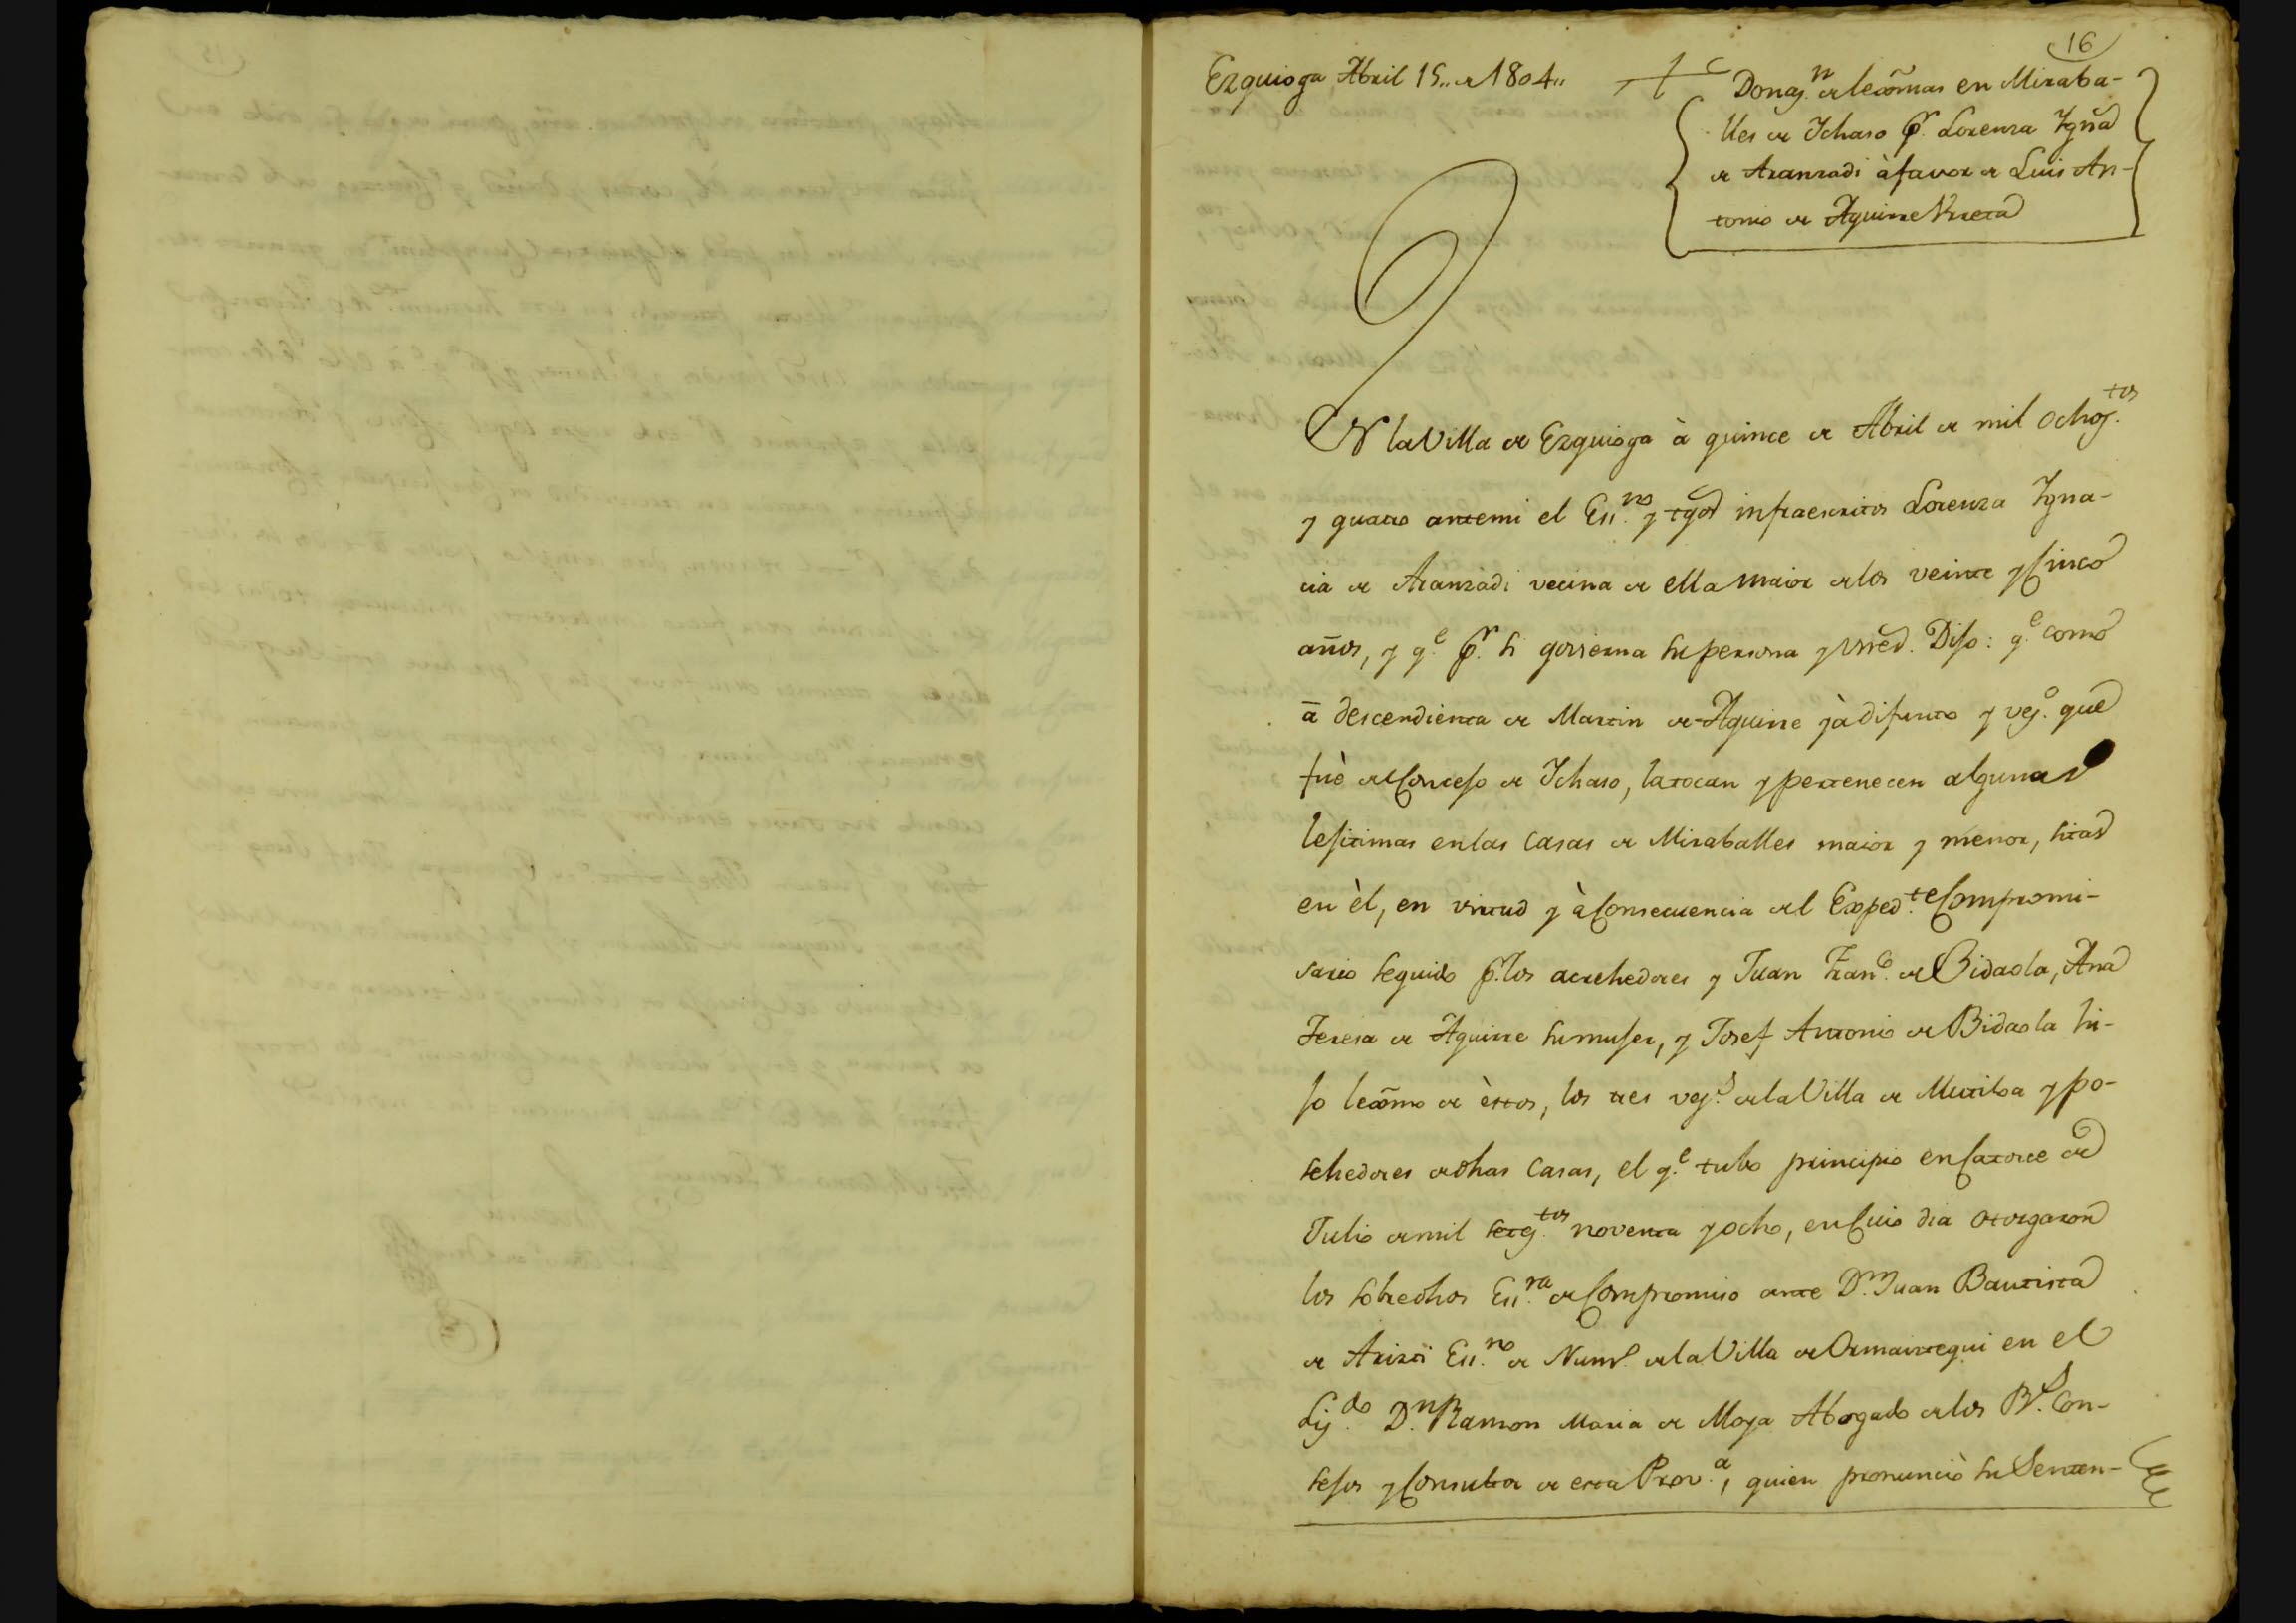 16
Ezquioga Abril 15,, de 1804,,
Donaz.n de lexmas en Miraba-
lles de Ichaso p.r Lorenza Ygna
de Aranzadi à favor de Luis An-
tonio de Aguirre Urreta
EN la Villa de Ezquioga à quince de Abril de mil ochoz.tos
y quatro antemi el Ess.no y tgos infraescritos Lorenza Ygna-
cia de Aranzadi vecina de ella maior de los veinte y Cinco
años, y q.e p.r si govierna su persona y Dijo: q.e como
a descendienta de Martin de Aguirre yà difunto y vez.o que
fuè del Concejo de Ichaso, la tocan y pertenecen algunas
lejitimas en las Casas de Miraballes maior y menor, sitas
en èl, en virtud y à Consecuencia del Exped.te Compromi-
sario seguido p.r los acrehedores y Juan Fran.co de Bidaola, Ana
Teresa de Aguirre su mujer, y Josef Antonio de Bidaola hi-
jo lexmo de èstos, los tres vez.s de la Villa de Mutiloa y po-
sehedores de dhas Casas, el q.e tubo principio en Catorce de
Julio de mil setez.tos noventa y ocho, en Cuio dia otorgaron
los sobredhos Ess.ra de Compromiso ante D.n Juan Bautista
de Arizti Ess.no de Num.o de la Villa de Ormaiztegui en el
Liz.do D.n Ramon Maria de Moya Abogado de los R.s Con-
sejos y Consultor de esta Prov.a, quien pronunciò su Senten-